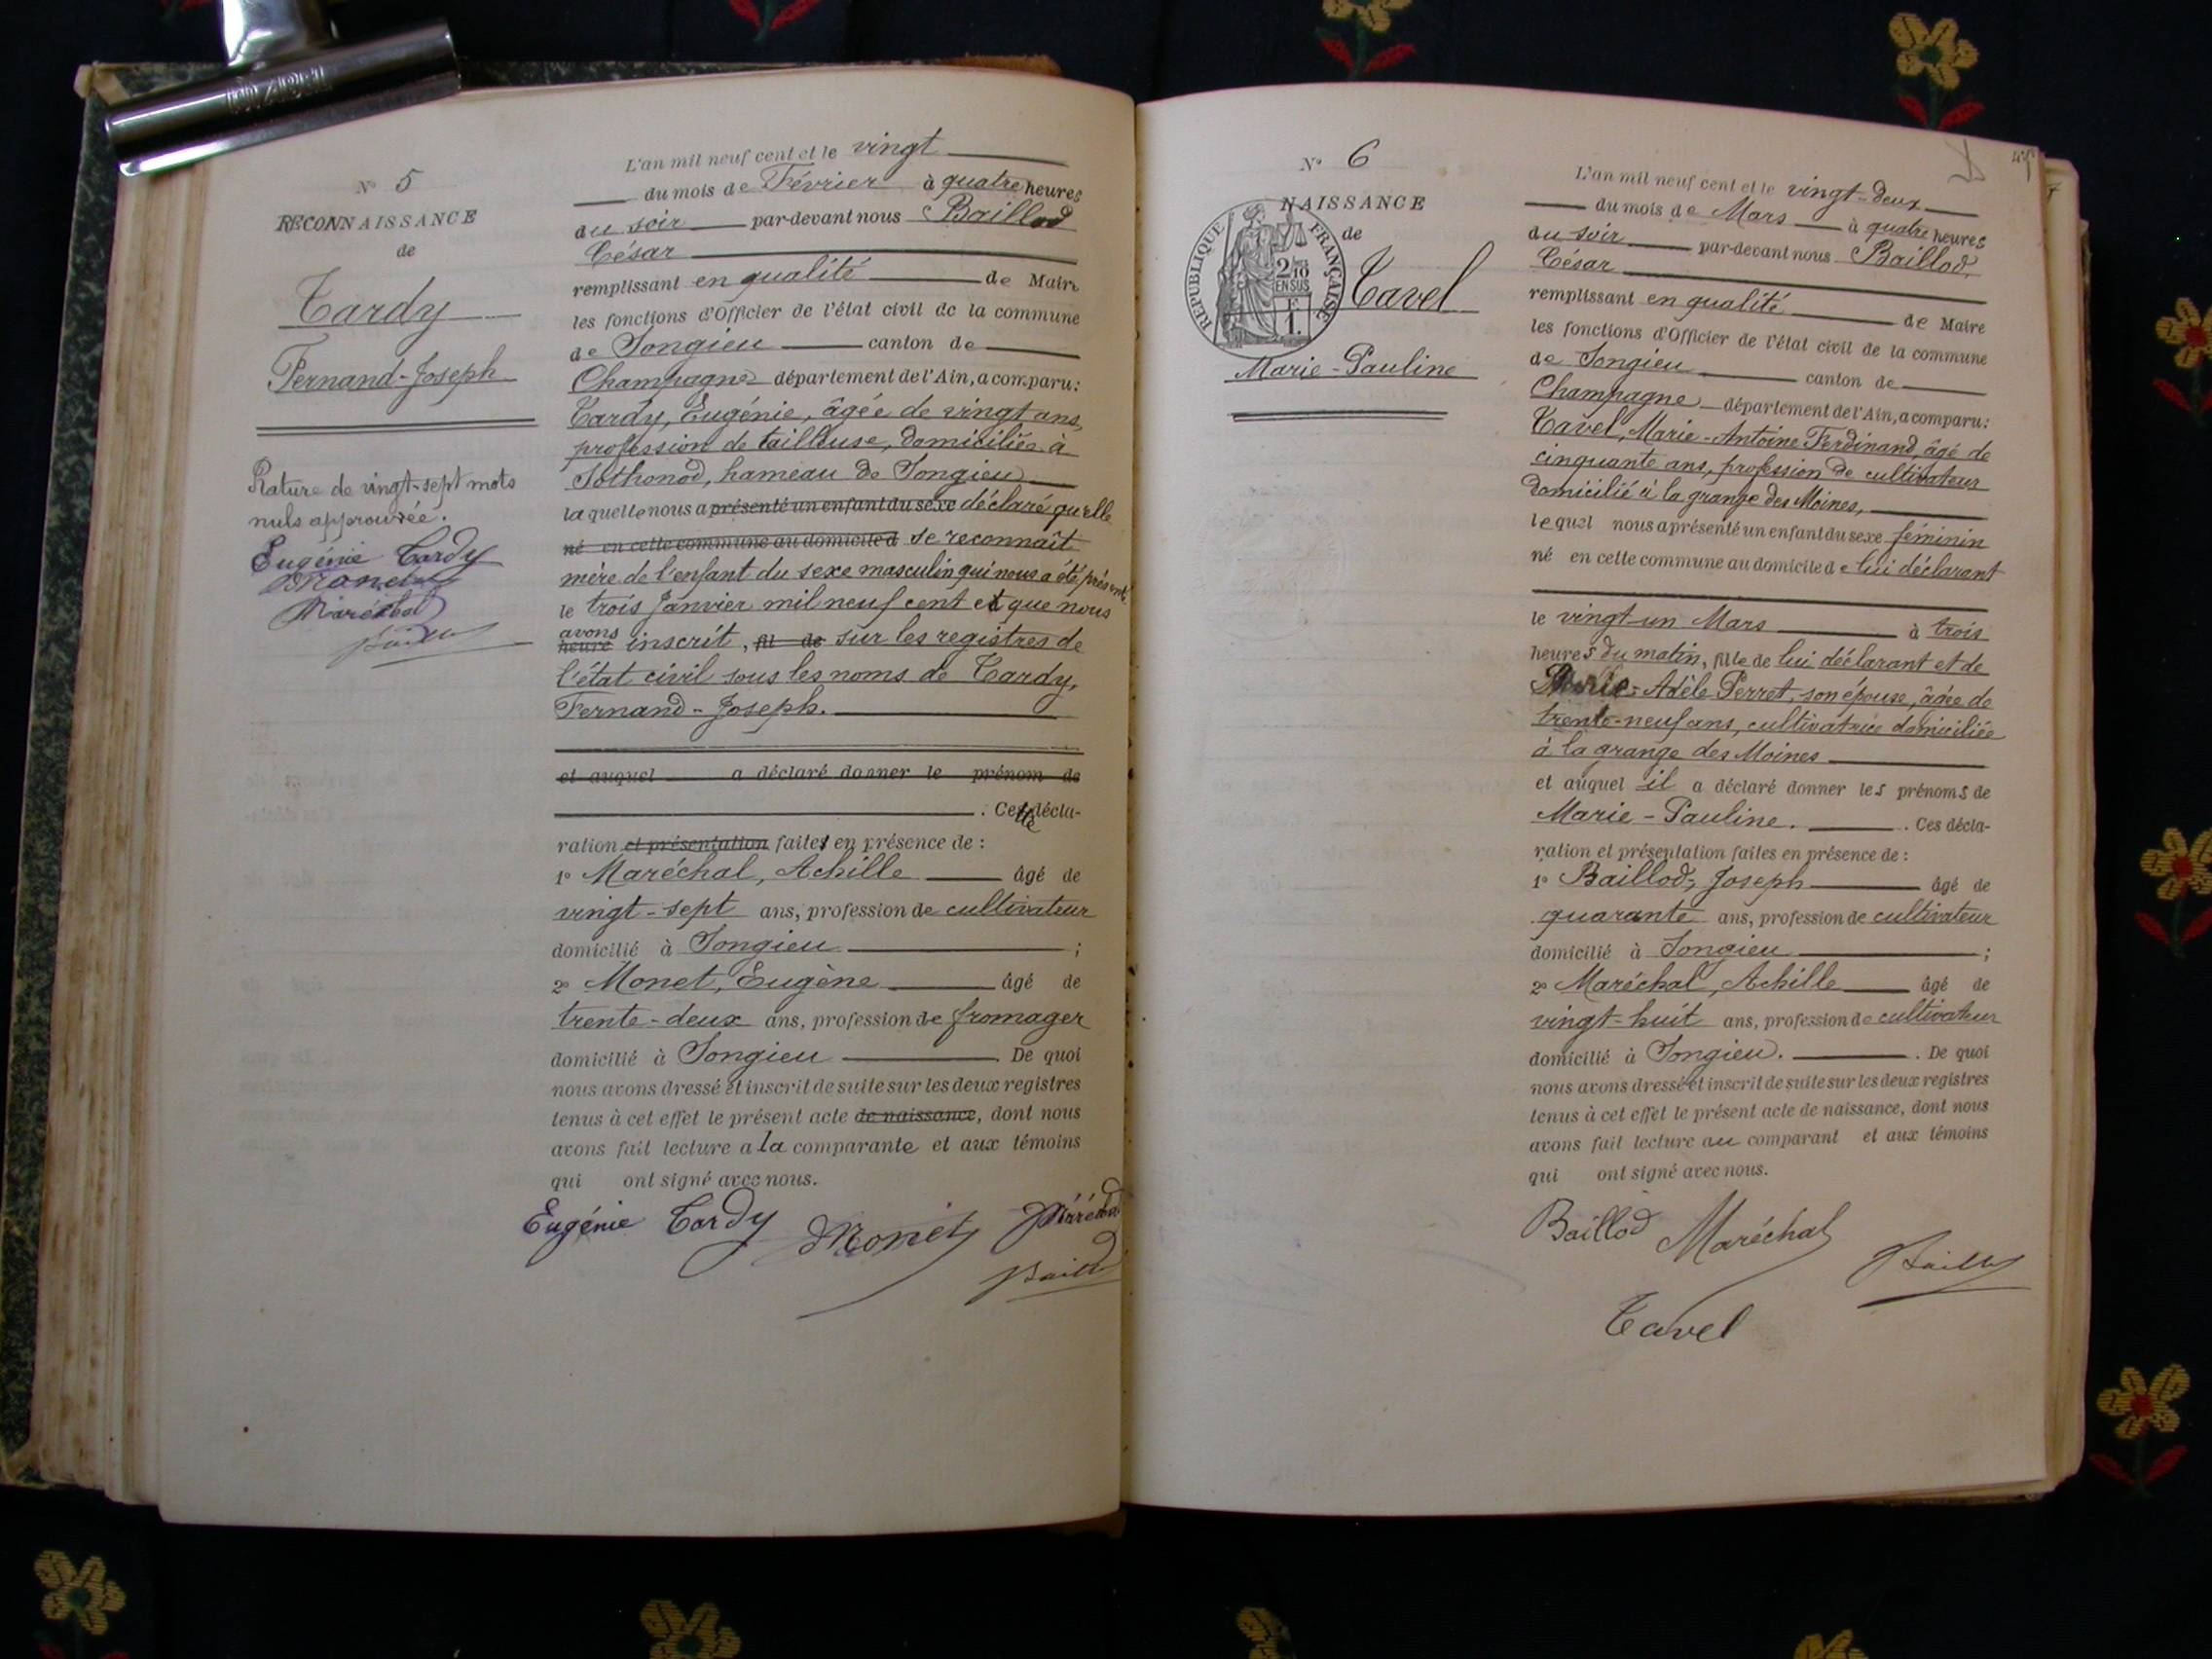 N° 5
RECONNAISSANCE
de
Tardy
Fernand-Joseph
Rature de vingt-sept mots
nuls approuvée.
Eugénie Tardy
Monet
Maréchal
L'an mil neuf cent et le vingt
du mois de Février à quatre heures
du soir par-devant nous Baillod
César
remplissant en qualité de Maire
les fonctions d'Officier de l'état civil de la commune
de Songieu canton de
Champagne département de l'Ain, a comparu:
Tardy, Eugénie, âgée de vingt ans,
profession de tailleuse, domiciliée à
Sothonod, hameau de Songieu
la quelle nous a présenté un enfant du sexe déclaré qu'elle
né en cette commune au domicile d se reconnaît
mère de l'enfant du sexe masculin qui nous a été présenté
le trois Janvier mil neuf cent et que nous
avons
heure inscrit, fil de sur les registres de
l'état civil sous les noms de Tardy,
Fernand-Joseph.
et auquel a déclaré donner le prénom de
. Cette décla-
ration et présentation faites en présence de :
1° Maréchal, Achille âgé de
vingt-sept ans, profession de cultivateur
domicilié à Songieu ;
2° Monet, Eugène âgé de
trente-deux ans, profession de fromager
domicilié à Songieu . De quoi
nous avons dressé et inscrit de suite sur les deux registres
tenus à cet effet le présent acte de naissance, dont nous
avons fait lecture a la comparante et aux témoins
qui ont signé avec nous.
Eugénie Tardy Monet Maréchal
Baillod
N° 6
NAISSANCE
de
RÉPUBLIQUE FRANÇAISE
2/10
EN SUS
F
1.
Tavel
Marie-Pauline
L'an mil neuf cent et le vingt-deux
du mois de Mars à quatre heures
du soir par-devant nous Baillod,
César
remplissant en qualité de Maire
les fonctions d'Officier de l'état civil de la commune
de Songieu canton de
Champagne département de l'Ain, a comparu:
Tavel, Marie-Antoine Ferdinand, âgé de
cinquante ans, profession de cultivateur
domicilié à la grange des Moines,
le quel nous a présenté un enfant du sexe féminin
né en cette commune au domicile de lui déclarant
le vingt-un Mars à trois
heures du matin, fille de lui déclarant et de
Marie-Adèle Perret, son épouse, âgée de
trente-neuf ans, cultivatrice domiciliée
à la grange des Moines
et auquel il a déclaré donner les prénoms de
Marie-Pauline. . Ces décla-
ration et présentation faites en présence de :
1° Baillod, Joseph âgé de
quarante ans, profession de cultivateur
domicilié à Songieu ;
2° Maréchal, Achille âgé de
vingt-huit ans, profession de cultivateur
domicilié à Songieu. . De quoi
nous avons dressé et inscrit de suite sur les deux registres
tenus à cet effet le présent acte de naissance, dont nous
avons fait lecture au comparant et aux témoins
qui ont signé avec nous.
Baillod Maréchal
Baillod
Tavel